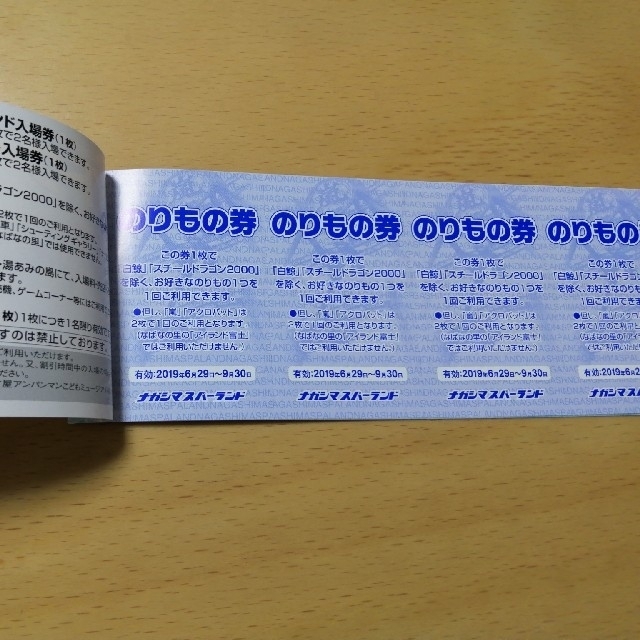 ンド入場券(1枚)
枚で2名様入場できます。
入場券(1枚)
枚で2名様入場できます。
ラゴン2000」を除く、お好き
2枚で1回のご利用となります
車」「シューティングギャラリー」
なばなの風」では使用できません
湯あみの島にて、入場料
機、ゲームコーナー等にはご利用
枚)1枚につき1名限り有効で
すのは禁止しております
ご利用いただけます。
せん。又、割引時間中の入場
ください。
屋アンパンマンこどもミュージアム
のりもの券 のりもの券 のりもの券 のりもの
この券1枚で
「白鯨」「スチールドラゴン2000」
を除く、お好きなのりもの1つを
1回ご利用できます。
●但し、「嵐」「アクロバット」は
2枚で1回のご利用となります。
(なばなの里の「アイランド富士」
ではご利用いただけません。)
有効:2019年6月29日〜9月30日
ナガシマスパーランド
この券1枚で
「白鯨」「スチールドラゴン2000」
を除く、お好きなのりもの1つを
1回ご利用できます。
●但し、「嵐」「アクロバット」は
2枚で1回のご利用となります。
(なばなの里の「アイランド富士」
ではご利用いただけません。)
有効:2019年6月29日〜9月30日
ナガシマスパーランド
この券1枚で
「白鯨」「スチールドラゴン2000」
を除く、お好きなのりもの1つを
1回ご利用できます。
●但し、「嵐」「アクロバット」は
2枚で1回のご利用となります。
(なばなの里の「アイランド富士」
ではご利用いただけません。)
有効:2019年6月29日〜9月30日
ナガシマスパーランド
この券1
「白鯨」「スチールド
を除く、お好きなの
1回ご利用で
●但し、「嵐」「アク
2枚で1回のご利
(なばなの里の「ア
ではご利用いた
有効:2019年6月2
ナガシマスパ